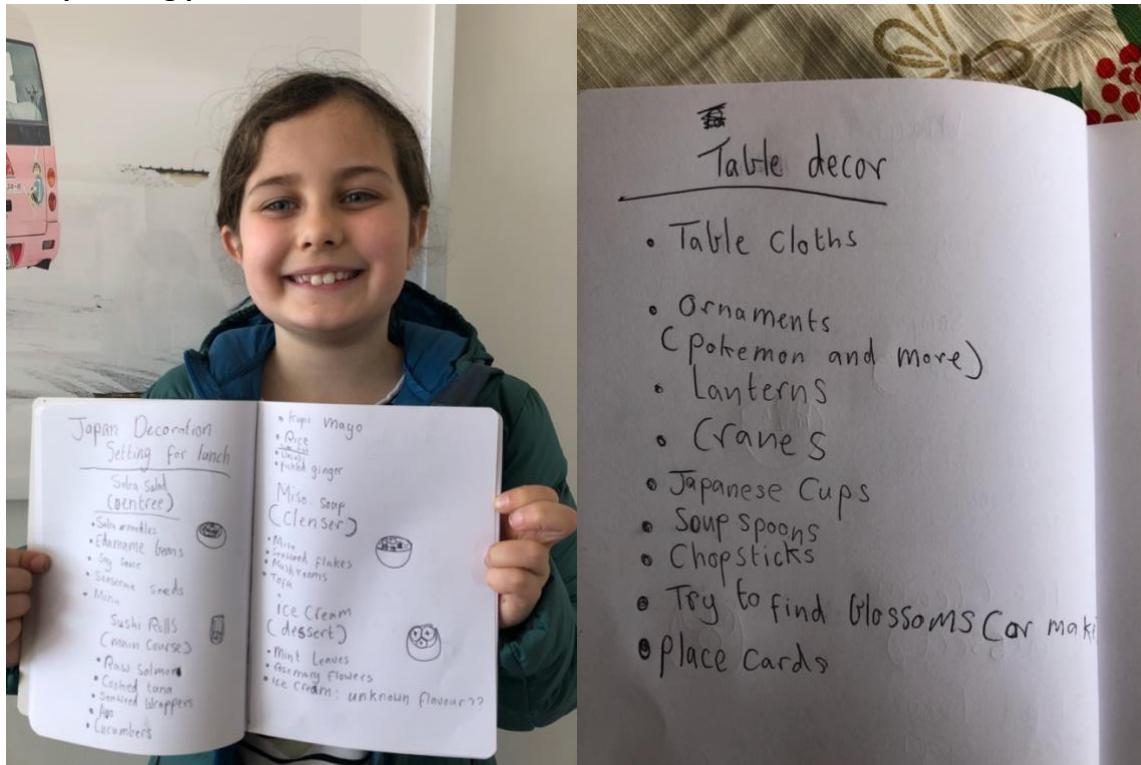 Japan Decoration
Setting for lunch
Soba Salad
(entree)
• Soba noodles
• Edamame beans
• Soy sauce
• seeds
Sushi Rolls
(main course)
• Raw salmon
• Cooked tuna
• Seaweed wrappers
• Avo
• Cucumbers
• Kupi mayo
• Rice
• pickled ginger
Miso soup
(Clenser)
• Miso
• Seaweed flakes
• Mushrooms
• Tofu
Ice Cream
(dessert)
• Mint Leaves
• Rosemary flowers
• Ice cream: unknown flavour??
Table decor
• Table Cloths
• Ornaments
(pokemon and more)
• Lanterns
• Cranes
• Japanese Cups
• Soup spoons
• Chopsticks
• Try to find blossoms (or maki
• place cards